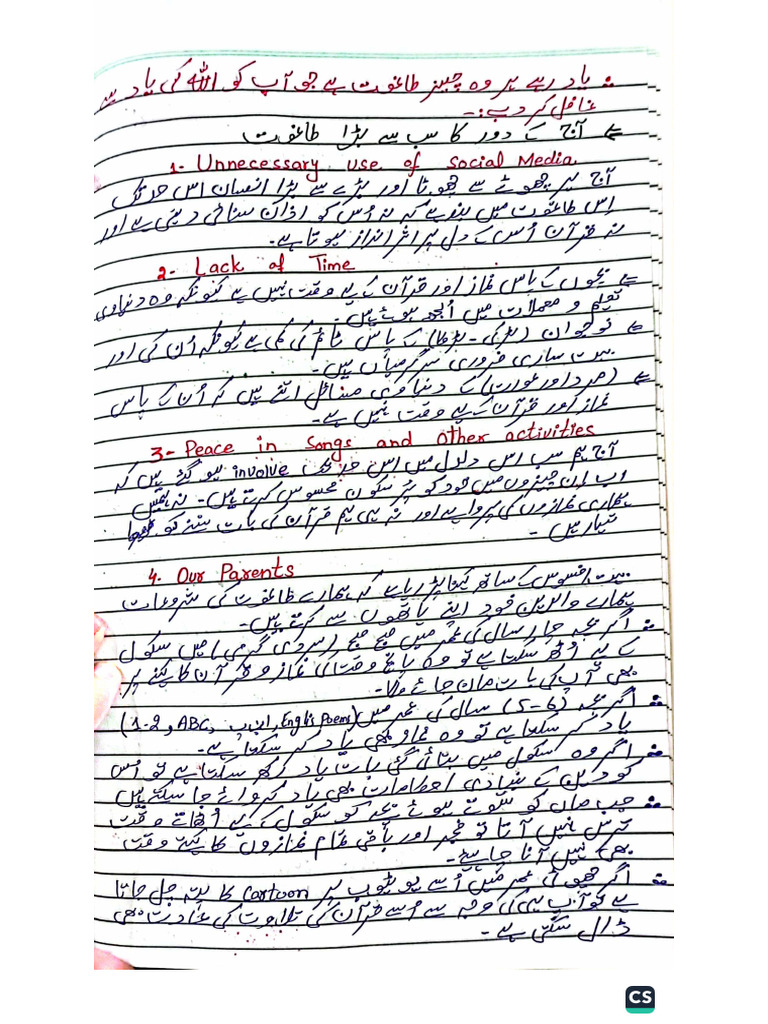 یاد رہے ہر وہ چیز طاغوت ہے جو آپ کو اللہ کی یاد سے
غافل کر دے:-
آج کے دور کا سب سے بڑا طاغوت
1- Unnecessary use of Social Media.
آج ہر چھوٹے سے چھوٹا اور بڑے سے بڑا انسان اس حد تک
اس طاغوت میں ہے کہ نہ اُس کو اذان سنائی دیتی ہے اور
نہ قرآن اُس کے دل پر اثر انداز ہوتا ہے۔
2- Lack of Time
بچوں کے پاس نماز اور قرآن کے لیے وقت نہیں ہے کیونکہ وہ دنیاوی
تعلیم و معملات میں اُلجھے ہوئے ہیں۔
نوجوان (لڑکی - لڑکا) کے پاس ٹائم کی کمی ہے کیونکہ اُن کی اور
بہت ساری ضروری سرگرمیاں ہیں۔
(مرد اور عورت) کے دنیاوی مسائل اتنے ہیں کہ اُن کے پاس
نماز اور قرآن کے لیے وقت نہیں ہے۔
3- Peace in Songs and Other activities
آج ہم سب اس دلدل میں اس حد تک involve ہو گئے ہیں کہ
اب ان چیزوں میں خود کو پُر سکون محسوس کرتے ہیں۔ نہ ہمیں
ہماری نمازوں کی پرواہ ہے اور نہ ہی ہم قرآن کی بات سننے کو
تیار ہیں۔
4. Our Parents
بہت افسوس کے ساتھ کہنا پڑ رہا ہے کہ ہمارے طاغوت کی شروعات
ہمارے والدین خود اپنے ہاتھوں سے کرتے ہیں۔
اگر بچہ چار سال کی عمر میں صبح صبح (سردی گرمی) میں سکول
کے لیے اُٹھ سکتا ہے تو وہ پانچ وقت کی نماز و قرآن کا کہنے پر
بھی آپ کی بات مان جائے گا۔
اگر بچہ (5-6) سال کی عمر میں (1-2, ABC, ا ب پ, Englis Poem)
یاد کر سکتا ہے تو وہ نماز بھی یاد کر سکتا ہے۔
اگر وہ سکول میں بتائی گئی بات یاد رکھ سکتا ہے تو اُس
کو دین کے بنیادی احکامات بھی یاد کروائے جا سکتے ہیں
جب ماں کو سوتے ہوئے بچے کو سکول کے لیے اُٹھاتے وقت
ترس نہیں آتا تو فجر اور باقی تمام نمازوں کا کہتے وقت
بھی نہیں آنا چاہیے۔
اگر چھوٹی عمر میں اُسے یوٹیوب پر Cartoon کا پتہ چل جاتا
ہے تو آپ ہی کی وجہ سے اُسے قرآن کی تلاوت کی عادت بھی
ڈال سکتی ہے۔
CS